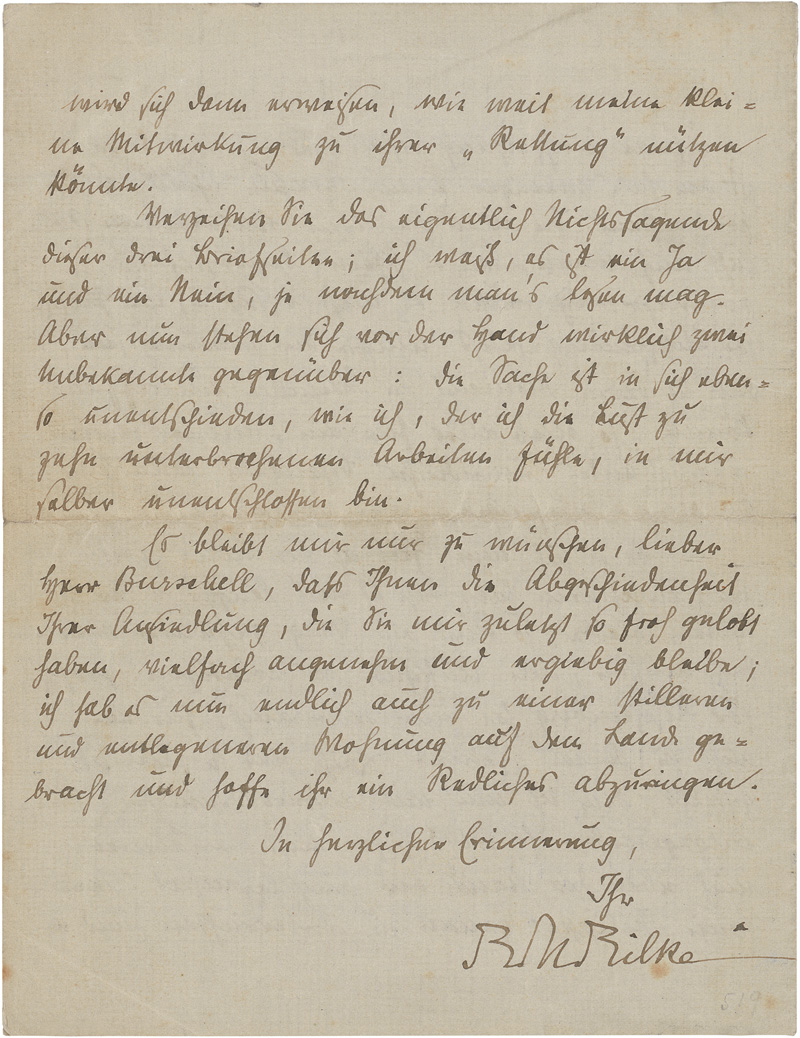 wird sich dann erweisen, wie weit meine klei=
ne Mitwirkung zu ihrer „Rettung“ nützen
könnte.
Verzeihen Sie das eigentlich Nichtssagende
dieser drei Briefseiten; ich weiß, es ist ein Ja
und ein Nein, je nachdem man's lesen mag.
Aber nun stehen sich vor der Hand wirklich zwei
Unbekannte gegenüber: die Sache ist in sich eben=
so unentschieden, wie ich, der ich die Lust zu
zehn unterbrochenen Arbeiten fühle, in mir
selber unentschlossen bin.
Es bleibt mir nur zu wünschen, lieber
Herr Burschell, dass Ihnen die Abgeschiedenheit
Ihrer Ansiedlung, die Sie mir zuletzt so froh gelobt
haben, vielfach angenehm und ergiebig bleibe;
ich hab es nun endlich auch zu einer stilleren
und entlegeneren Wohnung auf dem Lande ge=
bracht und hoffe ihr ein Redliches abzuringen.
In herzlicher Erinnerung,
Ihr
RMRilke
519